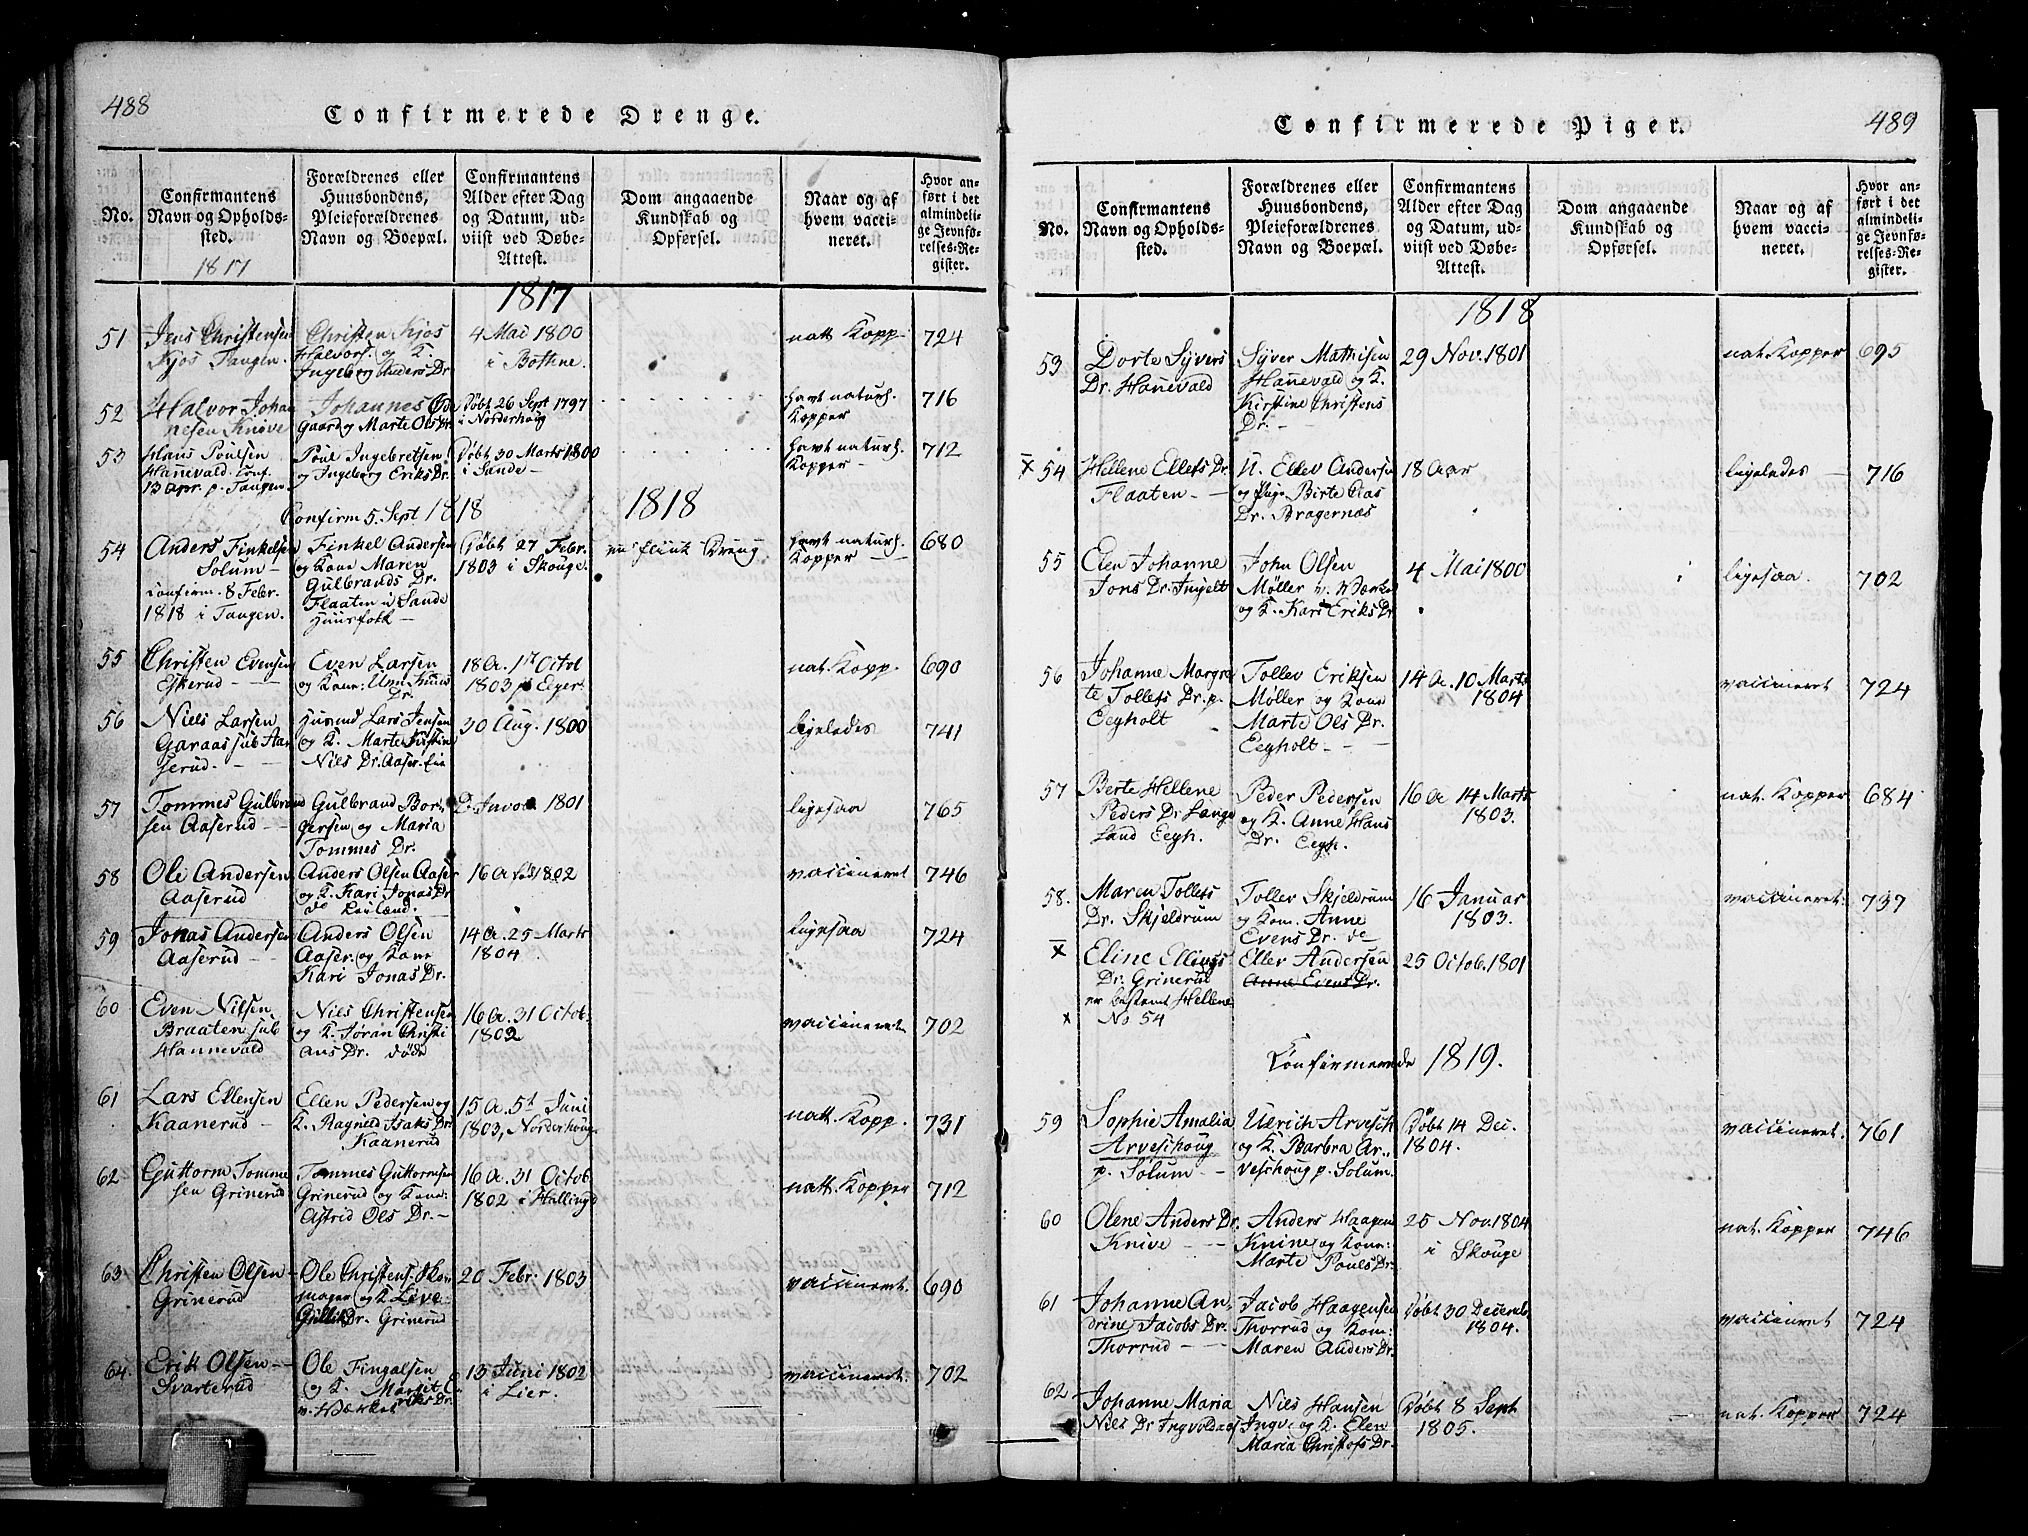 488
Confirmerede Drenge.
No.
Confirmantens
Navn og Opholds-
sted.
1817
Forældrenes eller
Huusbondens,
Pleieforældrenes
Navn og Boepæl.
Confirmantens
Alder efter Dag
og Datum, ud-
viist ved Døbe-
Attest.
Dom angaaende
Kundskab og
Opførsel.
Naar og af
hvem vacci-
neret.
Hvor an-
ført i det
almindeli-
ge Jevnfø-
relses-Re-
gister.
1817
51
Jens Christensen
Kjos Tangen.
Christen Kjos
Halvors. og K.
Ingeborg Anders Dr
4 Mai 1800
i Bothne.
natt Kopp.
724
52
Halvor Johan
nesen Knive
Johannes Øde
gaard og Marte Ols Dr.
Døbt 26 Sept 1797
i Norderhoug
havt naturl.
Kopper
716
53
Hans Poulsen
Hanevald. conf.
13 Apr. p. Tangen
Poul Ingebretsen
og Ingeborg Eriks Dr.
Døbt 30 Marts 1800
i Sande
havt naturl.
Kopper
712
Confirm 5. Sept 1818
1818
54
Anders Finkelsen
Solum
confirm. 8 Febr.
1818 i Tangen.
Finkel Andersen
og Kone Maren
Gulbrands Dr.
Flaaten i Sande
Huusfolk
Døbt 27 Febr.
1803 i Skouge.
flink Dreng
havt naturl.
Kopper
680
55
Christen Evensen
Eskerud
Even Larsen
og Kone:
Dr.
18 A. 1t Octob
1803 p Eger
nat. Kopp.
690
56
Niels Larsen
Garaas sub Aa
serud.
Lars Jensen
og K. Marte Kirstin
Niels Dr. Aaser. Eie
30 Aug. 1800
ligeledes
741
57
Tommes Gulbrand
sen Aaserud
Gulbrand Bor
gersen og Maria
Tommes Dr.
1801
ligesaa
765
58
Ole Andersen
Aaserud
Anders Olsen Aaser
og K. Kari Jonas Dr
16 A 1802
vaccineret
746
59
Jonas Andersen
Aaserud
Anders Olsen
Aaser. og Kone
Kari Jonas Dr.
14 A. 25 Marts
1804.
ligesaa
724
60
Even Nilsen
Braaten sub
Hannevald
Niels Christensen
og K. Jøran Christi
ans Dr. døde
16 A. 31 Octob.
1802
vaccineret
702
61
Lars Ellensen
Kaanerud
Ellen Pedersen og
K. Ragnild Isaks Dr
Kaanerud
15 A. 5t Juni
1803, Norderhoug
natt. Kopp.
731
62
Guttorm Tomme
sen Grinerud
Tommes Guttormsen
Grinerud og Kone
Astrid Ols Dr.
16 A. 31 Octob.
1802. i Hallingd
natt. Kopper
712
63
Christen Olsen
Grinerud
Ole Christens. Skoe
mager og K. Live
Gullik Dr. Grinerud
20 Febr. 1803
vaccineret.
690
64.
Erik Olsen
Svarterud
Ole Fingalsen
og K. Marget E
v. Værket riks Dr.
13 Juni 1802
i Lier.
vaccineret.
702
489
Confirmerede Piger.
No.
Confirmantens
Navn og Opholds-
sted.
Forældrenes eller
Huusbondens,
Pleieforældrenes
Navn og Boepæl.
Confirmantens
Alder efter Dag
og Datum, ud-
viist ved Døbe-
Attest.
Dom angaaende
Kundskab og
Opførsel.
Naar og af
hvem vacci-
neret.
Hvor an-
ført i det
almindeli-
ge Jevnfø-
relses-Re-
gister.
1818
53
Dorte Syvers
Dr. Hanevald
Syver Mathisen
Hanevald og K.
Kirstine Christens
Dr.
29 Nov. 1801
nat. Kopper
695
x 54
Hellene Ellefs Dr.
Flaaten
U. Ellev Andersen
og Pige Birte Clas
Dr. Bragernæs
18 Aar
ligeledes
716
55
Elen Johanne
Jons Dr. Ingelt
John Olsen
Møller v. Værke
og K. Kari Eriks Dr
4 Mai 1800
ligesaa.
702
56
Johanne Margre
te Tollefs Dr. p.
Eegholt
Tollev Eriksen
Møller og Kone
Marte Ols Dr.
Eegholt
14 A. 10 Marts
1804
vaccineret
724
57
Berte Hellene
Peders Dr Lange
land Eegh.
Peder Pedersen
og K. Anne Hans
Dr. Eegh.
16 A 14 Marts
1803.
nat. Kopper
684
58.
Maren Tollefs
Dr. Skjeldrum
Tollev Skjeldrum
og Kone. Anne
Evens Dr. de
16 Januar
1803.
vaccineret.
737
x
Eline Ellings
Dr. Grinerud
er bestemt Hellene
x No 54
Ellev Andersen
Anne Evens Dr.
25 Octob. 1801
Confirmerede 1819.
59
Sophie Amalia
Arveschoug
p. Solum
Ulrich Arvesch
og K. Barbra Ar-
veschoug p. Solum.
Døbt 14 Dec.
1804.
vaccineret.
761
60
Olene Anders Dr.
Knive
Anders Haagen
Knive og Kone
Marte Pouls Dr.
25 Nov. 1804
i Skouge
nat. Kopper
746
61
Johanne An
drine Jacobs Dr.
Thorrud
Jacob Haagensen
Thorrud og Kone
Maren Anders Dr.
Døbt 30 Decemb
1804.
vaccineret
724
62
Johanne Maria
Niels Dr Ingvoldaas
Niels Hansen
Ingv. og K. Elen
Maria Christofs Dr.
Døbt 8 Sept
1805.
nat. Kopper
724